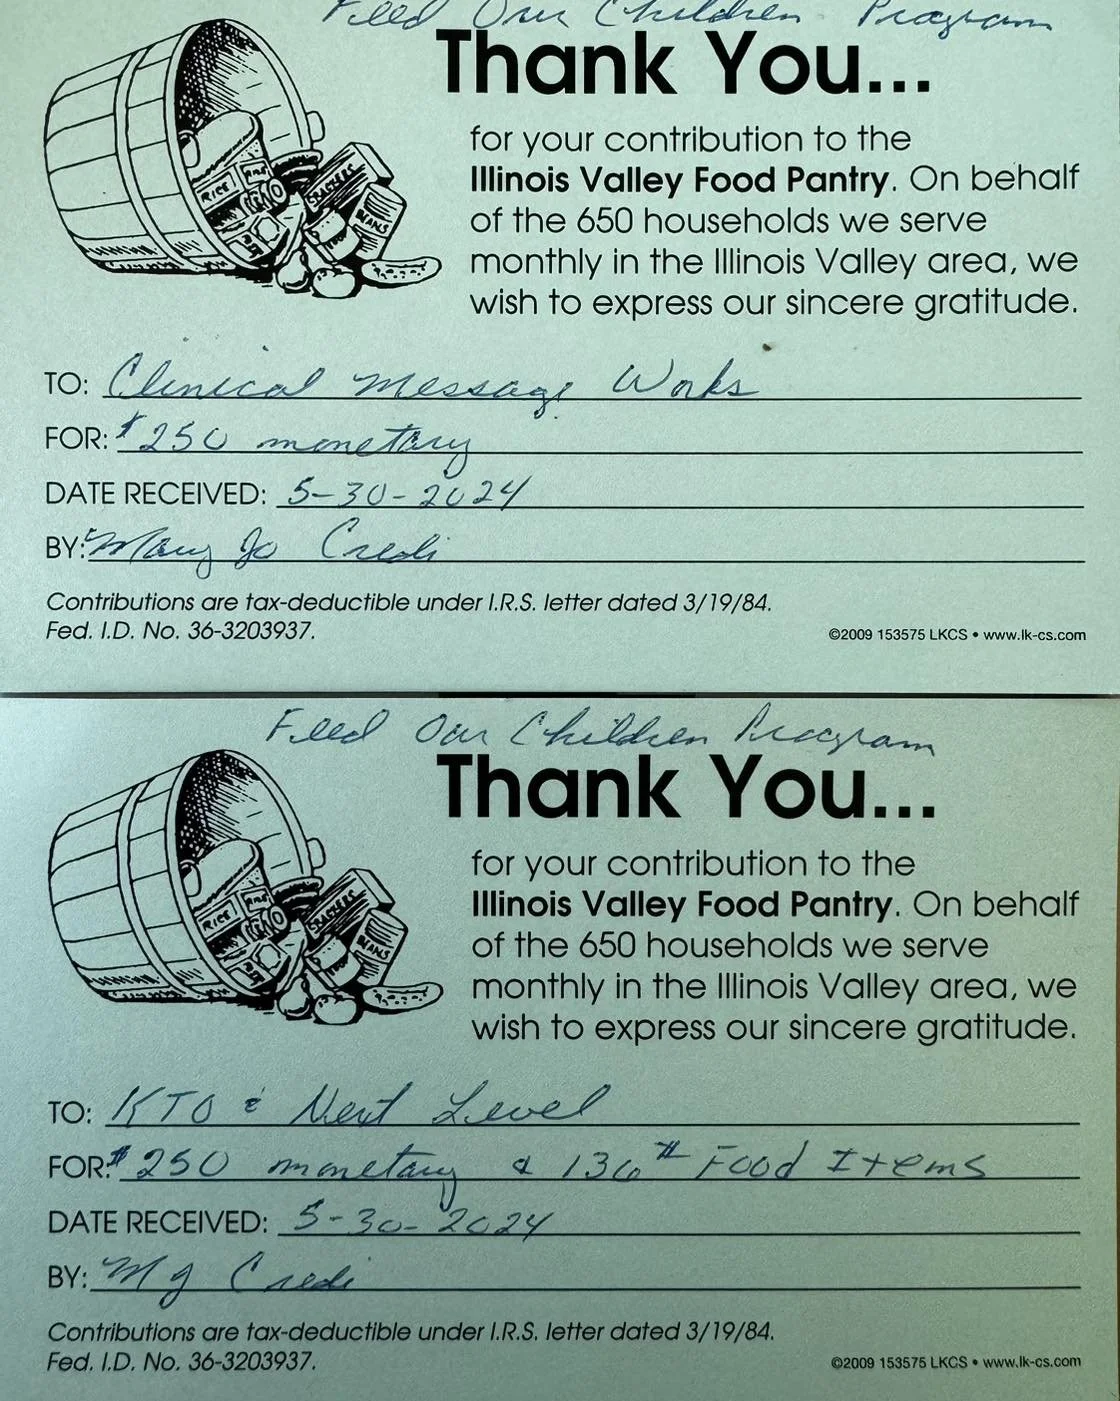 Feed Our Children Program
Thank You...
for your contribution to the
Illinois Valley Food Pantry. On behalf
of the 650 households we serve
monthly in the Illinois Valley area, we
wish to express our sincere gratitude.
RICE
CRACKERS
BEANS
TO: Clinical Message Works
FOR: $250 monetary
DATE RECEIVED: 5-30-2024
BY: Mary Jo Credi
Contributions are tax-deductible under I.R.S. letter dated 3/19/84.
Fed. I.D. No. 36-3203937.
©2009 153575 LKCS • www.lk-cs.com
Feed Our Children Program
Thank You...
for your contribution to the
Illinois Valley Food Pantry. On behalf
of the 650 households we serve
monthly in the Illinois Valley area, we
wish to express our sincere gratitude.
RICE
CRACKERS
BEANS
TO: KTO & Next Level
FOR: $250 monetary & 136# Food Items
DATE RECEIVED: 5-30-2024
BY: MJ Credi
Contributions are tax-deductible under I.R.S. letter dated 3/19/84.
Fed. I.D. No. 36-3203937.
©2009 153575 LKCS • www.lk-cs.com